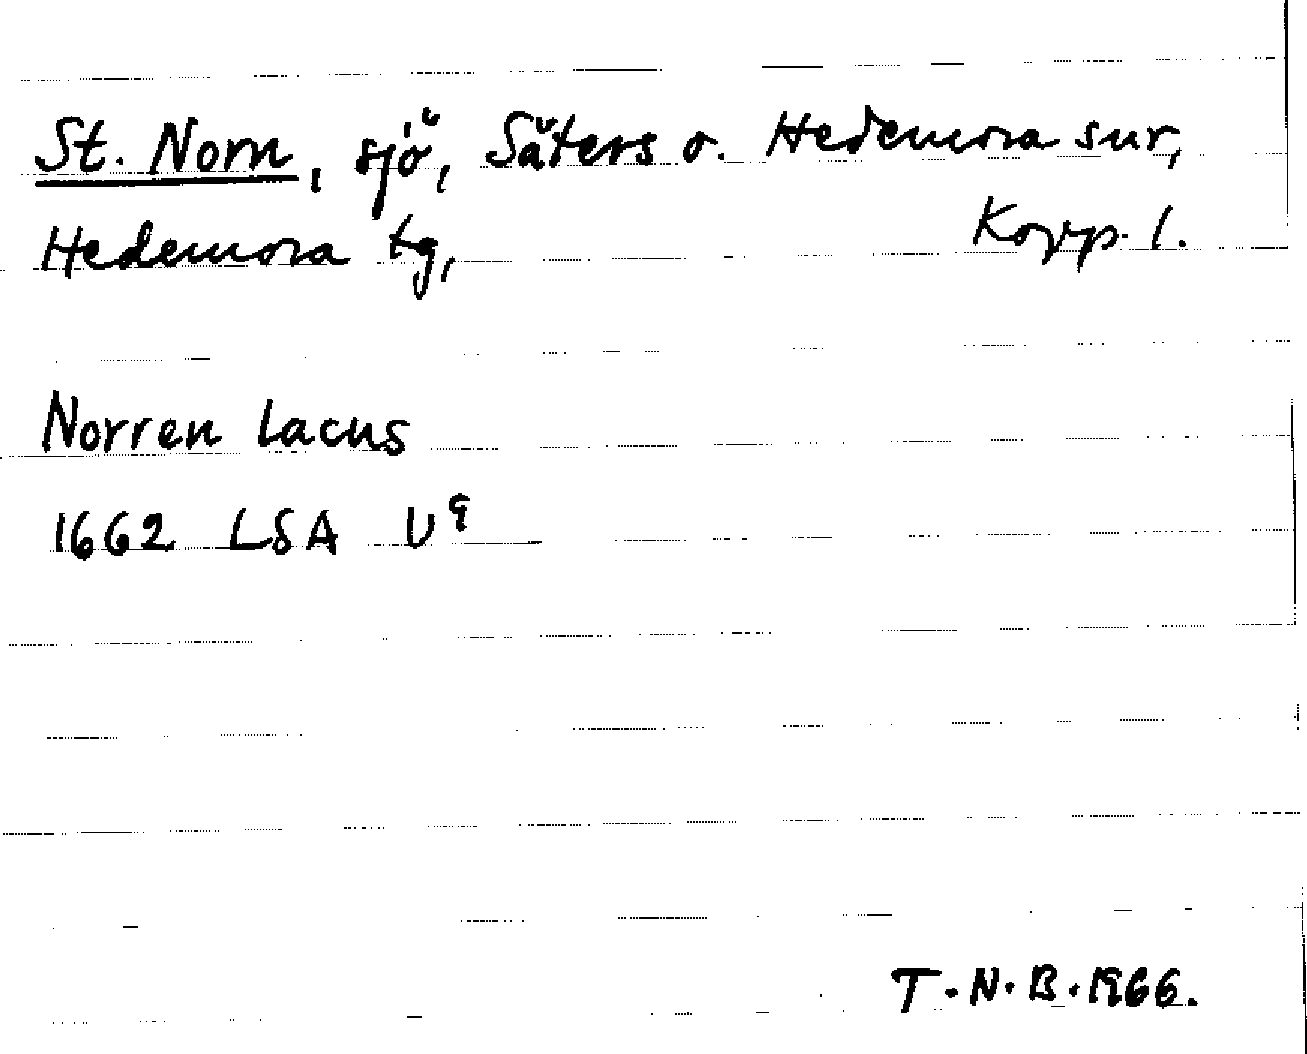 St. Norn, sjö, Säters o. Hedemora sur,
Hedemora tg, Kopp. l.
Norren Lacus
1662 LSA U⁹
T.N.B. 1966.